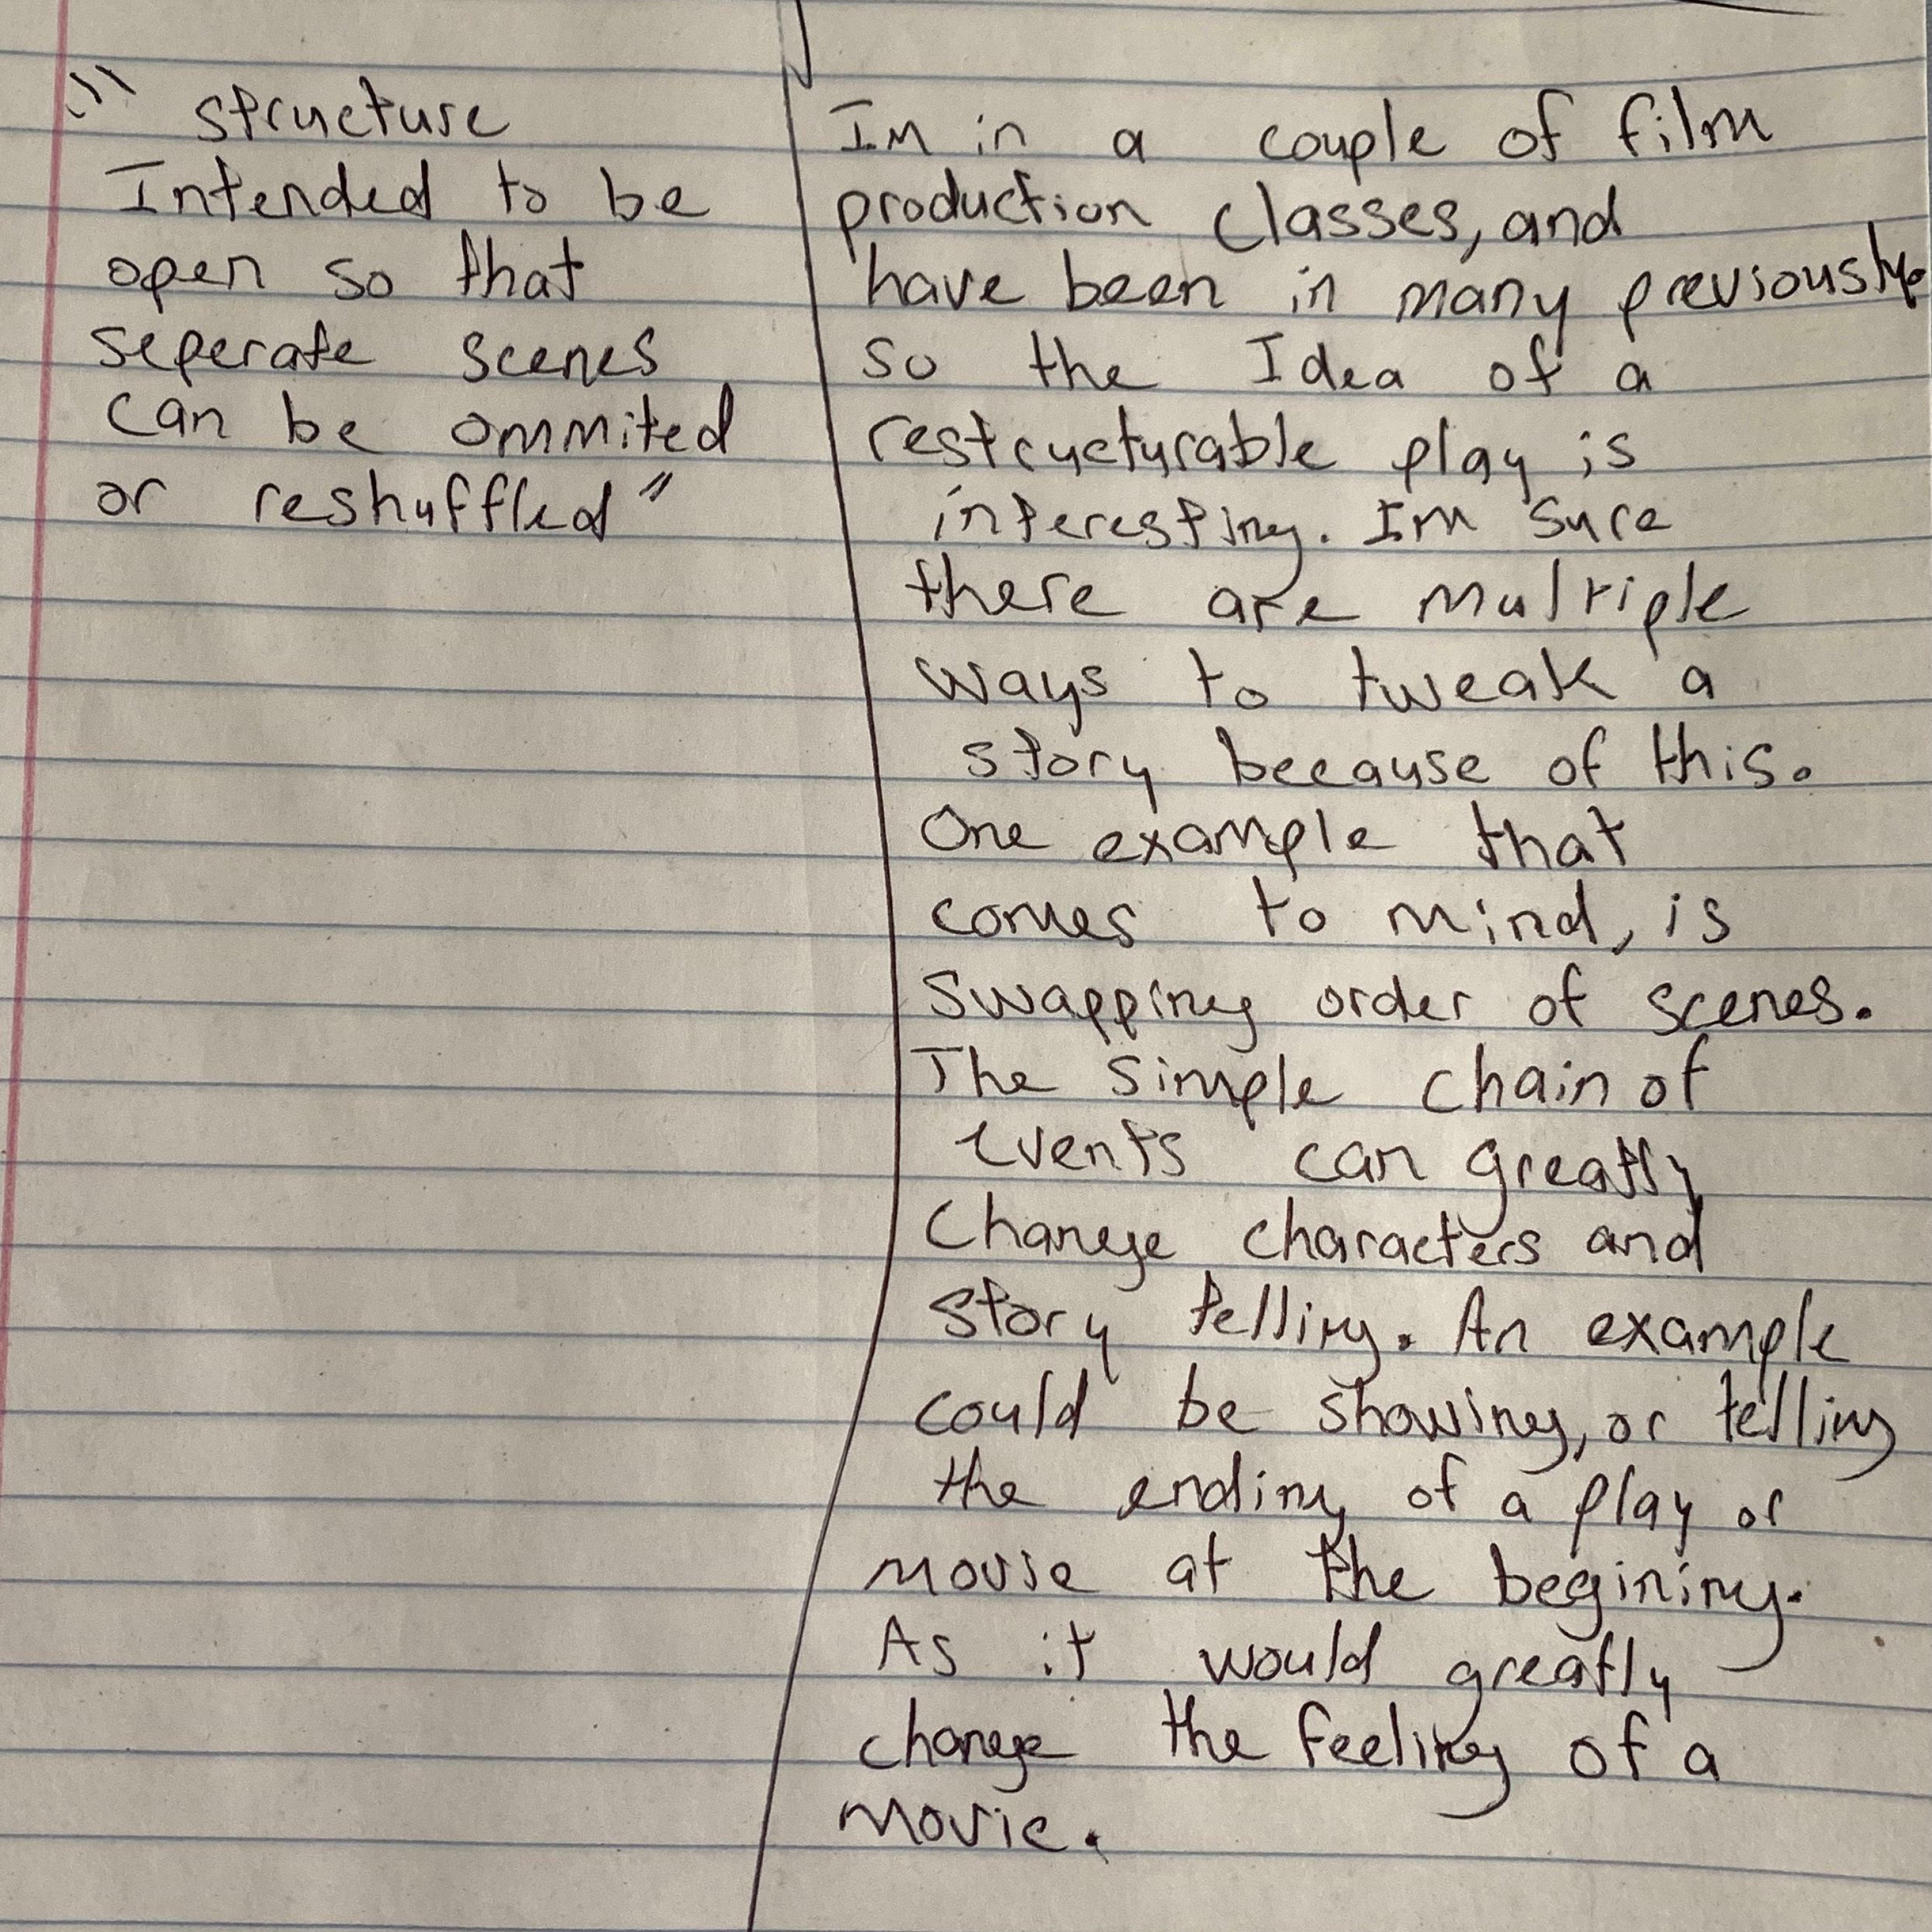 " structure
Intended to be
open so that
seperate scenes
can be ommited
or reshuffled"
Im in a couple of film
production classes, and
have been in many previously.
so the Idea of a
restructurable play is
interesting. Im sure
there are multiple
ways to tweak a
story because of this.
One example that
comes to mind, is
swapping order of scenes.
The simple chain of
events can greatly
change characters and
story telling. An example
could be showing, or telling
the ending of a play or
movie at the begining.
As it would greatly
change the feeling of a
movie.